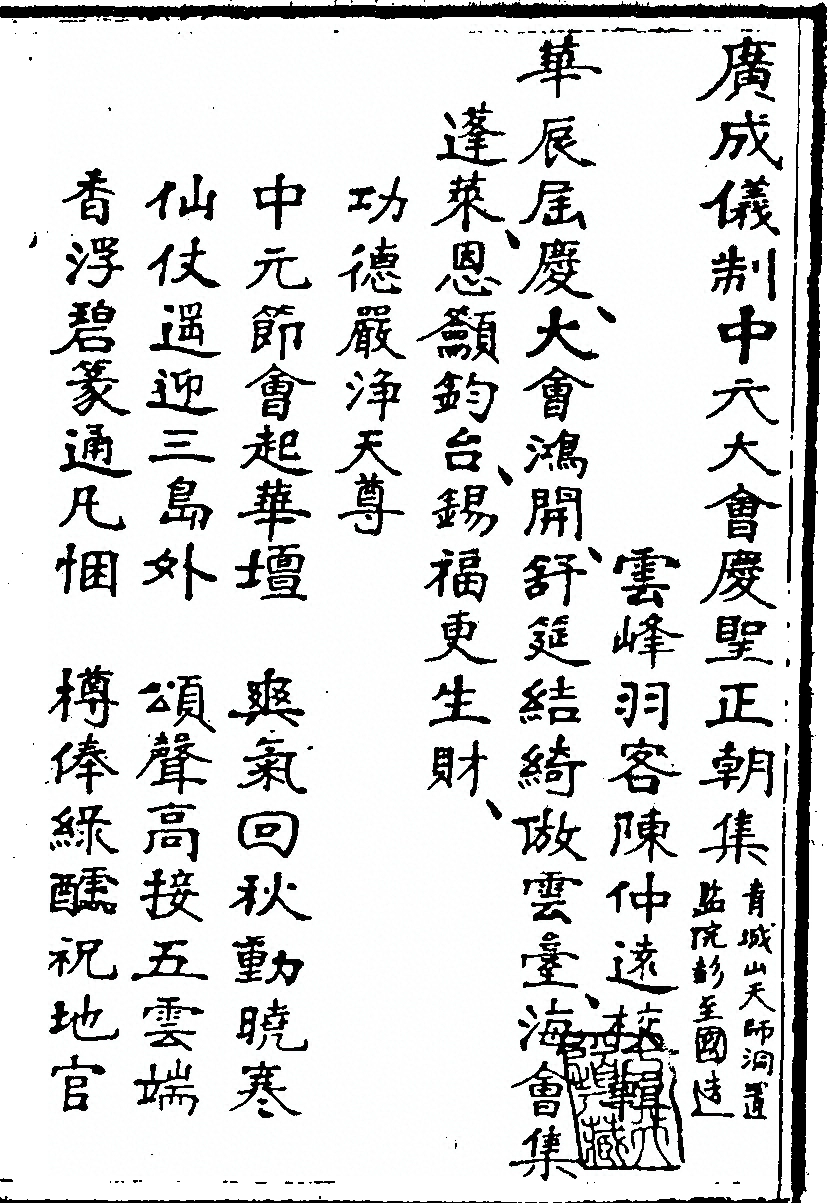 廣成儀制中元大會慶聖正朝集
青城山天師洞置
監院彭至國造
雲峰羽客陳仲遠校輯
華辰届慶、大會鴻開、舒筵結綺倣雲臺、海會集
蓬萊、恩籲鈞台、錫福更生財、
功德嚴浄天尊
中元節會起華壇　爽氣回秋動曉寒
仙仗遥迎三島外　頌聲高接五雲端
香浮碧篆通凡悃　樽俸綠醽祝地官